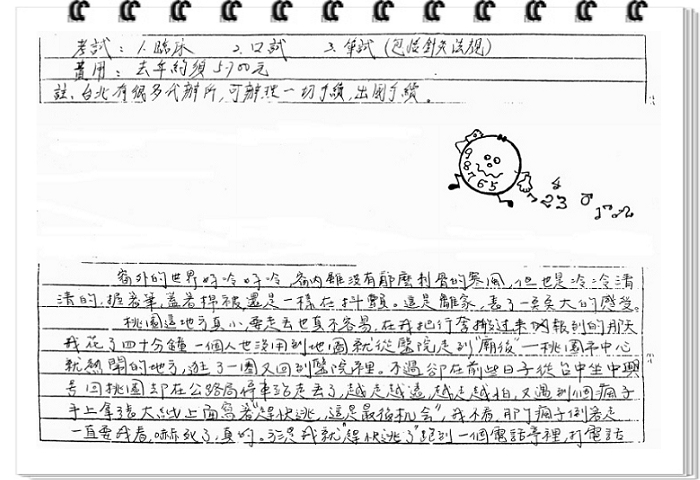 考試：1.臨床 2.口試 3.筆試(包括針灸法規)
費用：去年約須5,900元
註、台北有很多代辦所,可辦理一切手續,出國手續。
9
8
7 6 5
4
23
窗外的世界好冷好冷,窗內雖沒有那麼刺骨的寒風,但也是冷冷清
清的,握著筆,蓋著棉被還是一樣在抖顫。這是離家,
桃園這地方真小,要走丟也真不容易,在我把行李搬過來報到的那天
我花了四十分鐘一個人也沒用到地圖就從醫院走到"廟後"—桃園市中心
就熱鬧的地方,逛了一圈又回到醫院裡。不過卻在前些日子從台中坐中興
号回桃園却在公路局停車站走丟了,越走越遠,越走越怕,又遇到個瘋子
手上拿張大紙上面寫著"趕快逃,這是最後机会",我不看,那個瘋子倒著走
一直要我看,嚇死了,真的。於是我就"趕快逃了"跑到一個電話亭裡,打電話